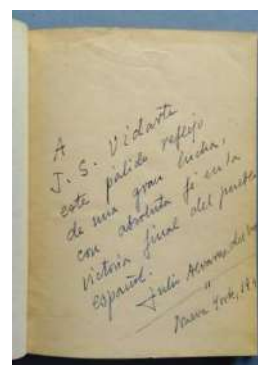 A
J. S. Vidarte
este pálido reflejo
de una gran lucha,
con absoluta fé en la
victoria final del pueblo
español.
Julio Alvarez del Vayo
Nueva York,